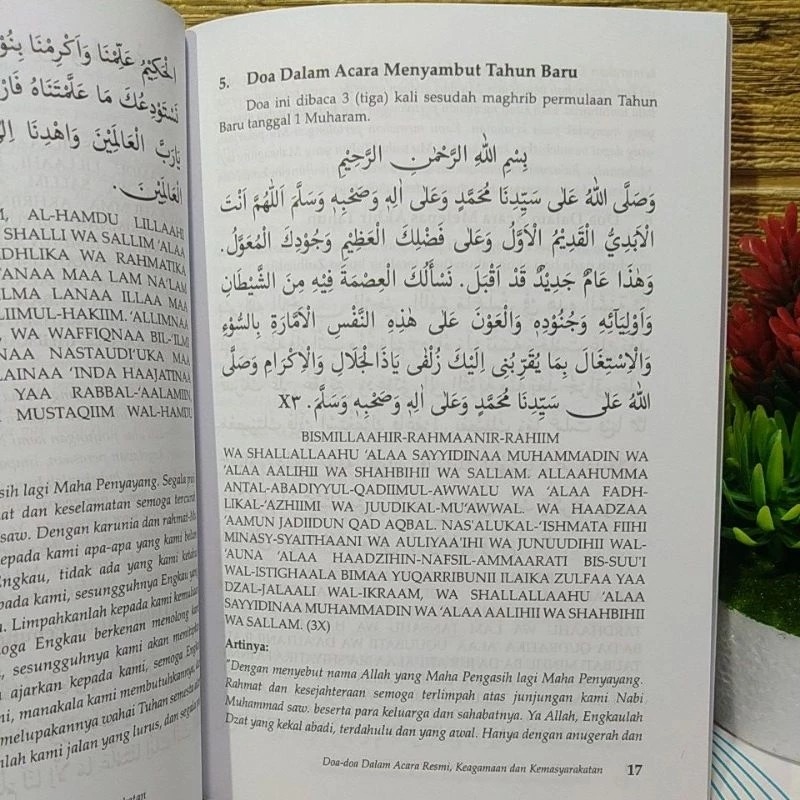 الْحَكِيْمُ عَلِّمْنَا وَاَكْرِمْنَا
نَسْتَوْدِعُكَ مَا عَلَّمْتَنَاهُ
يَارَبَّ الْعَالَمِيْنَ وَاهْدِنَا
الْعَالَمِيْنَ.
AL-HAMDU LILLAAHI
SHALLI WA SALLIM ‘ALAA
WA RAHMATIKA
MAA LAM NA’LAM
LANAA ILLAA MAA
‘ALLIMNAA
WA WAFFIQNAA BIL-‘ILMI
NASTAUDI’UKA MAA
‘INDA HAAJATINAA
YAA RABBAL-‘AALAMIIN,
MUSTAQIIM WAL-HAMDU
lagi Maha Penyayang. Segala
dan keselamatan semoga
saw. Dengan karunia dan
kepada kami apa-apa yang kami
Engkau, tidak ada yang kami
kami, sesungguhnya Engkau
Limpahkanlah kepada kami
Engkau berkenan menolong
sesungguhnya kami akan
ajarkan kepada kami, semoga
manakala kami membutuhkannya,
melupakannya wahai Tuhan semesta
kami jalan yang lurus, dan
5. Doa Dalam Acara Menyambut Tahun Baru
Doa ini dibaca 3 (tiga) kali sesudah maghrib permulaan Tahun
Baru tanggal 1 Muharam.
بِسْمِ اللهِ الرَّحْمٰنِ الرَّحِيْمِ
وَصَلَّى اللهُ عَلَى سَيِّدِنَا مُحَمَّدٍ وَعَلَى اٰلِهِ وَصَحْبِهِ وَسَلَّمَ اَللّٰهُمَّ اَنْتَ
الْاَبَدِيُّ الْقَدِيْمُ الْاَوَّلُ وَعَلَى فَضْلِكَ الْعَظِيْمِ وَجُوْدِكَ الْمُعَوَّلُ.
وَهٰذَا عَامٌ جَدِيْدٌ قَدْ اَقْبَلَ. نَسْأَلُكَ الْعِصْمَةَ فِيْهِ مِنَ الشَّيْطَانِ
وَاَوْلِيَآئِهِ وَجُنُوْدِهِ وَالْعَوْنَ عَلَى هٰذِهِ النَّفْسِ الْاَمَّارَةِ بِالسُّوْءِ
وَالْاِسْتِغَالَ بِمَا يُقَرِّبُنِى اِلَيْكَ زُلْفٰى يَاذَا الْجَلَالِ وَالْاِكْرَامِ وَصَلَّى
اللهُ عَلَى سَيِّدِنَا مُحَمَّدٍ وَعَلَى اٰلِهِ وَصَحْبِهِ وَسَلَّمَ. X٣
BISMILLAAHIR-RAHMAANIR-RAHIIM
WA SHALLALLAAHU ‘ALAA SAYYIDINAA MUHAMMADIN WA
‘ALAA AALIHII WA SHAHBIHII WA SALLAM. ALLAAHUMMA
ANTAL-ABADIYYUL-QADIIMUL-AWWALU WA ‘ALAA FADH-
LIKAL-‘AZHIIMI WA JUUDIKAL-MU’AWWAL. WA HAADZAA
‘AAMUN JADIIDUN QAD AQBAL. NAS'ALUKAL-‘ISHMATA FIIHI
MINASY-SYAITHAANI WA AULIYAA’IHI WA JUNUUDIHII WAL-
‘AUNA ‘ALAA HAADZIHIN-NAFSIL-AMMAARATI BIS-SUU'I
WAL-ISTIGHAALA BIMAA YUQARRIBUNII ILAIKA ZULFAA YAA
DZAL-JALAALI WAL-IKRAAM, WA SHALLALLAAHU ‘ALAA
SAYYIDINAA MUHAMMADIN WA ‘ALAA AALIHII WA SHAHBIHII
WA SALLAM. (3X)
Artinya:
"Dengan menyebut nama Allah yang Maha Pengasih lagi Maha Penyayang.
Rahmat dan kesejahteraan semoga terlimpah atas junjungan kami Nabi
Muhammad saw. beserta para keluarga dan sahabatnya. Ya Allah, Engkaulah
Dzat yang kekal abadi, terdahulu dan yang awal. Hanya dengan anugerah dan
Doa-doa Dalam Acara Resmi, Keagamaan dan Kemasyarakatan 17